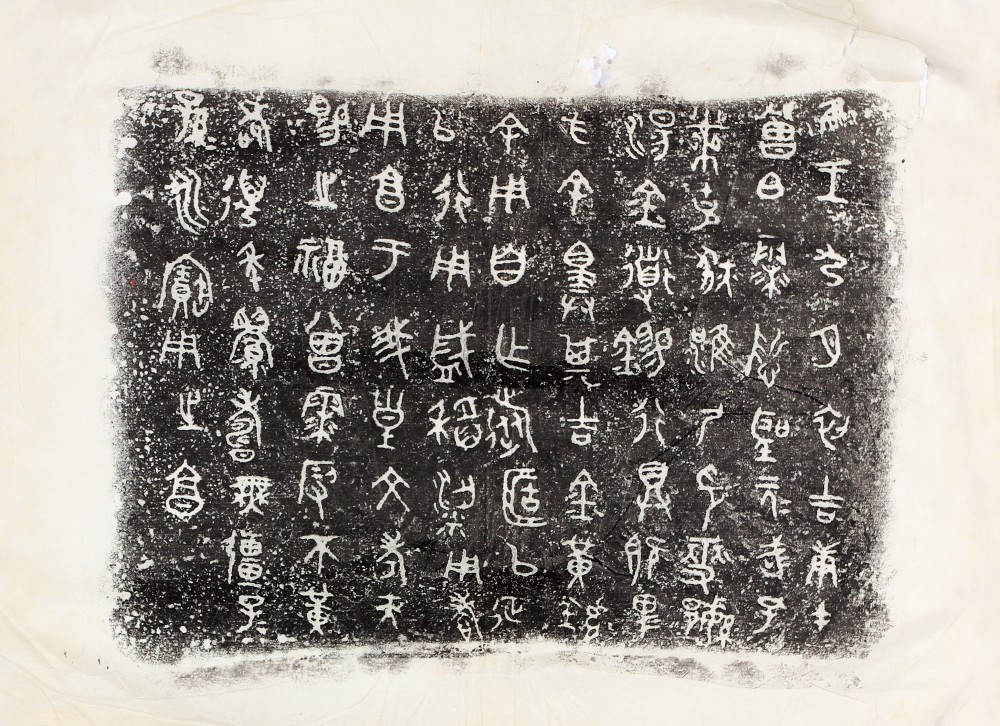 隹王九月初吉庚午
曾白霥哲聖元武孔
黹克狄淮尸印燮繁
湯金道錫行具既卑
方余擇其吉金黃鑪
余用自乍旅簠以征
以行用盛稻粱用孝
用享于我皇文考天
賜之福曾霥叚不黃
耇萬年眉壽無疆子
孫永寶用之享